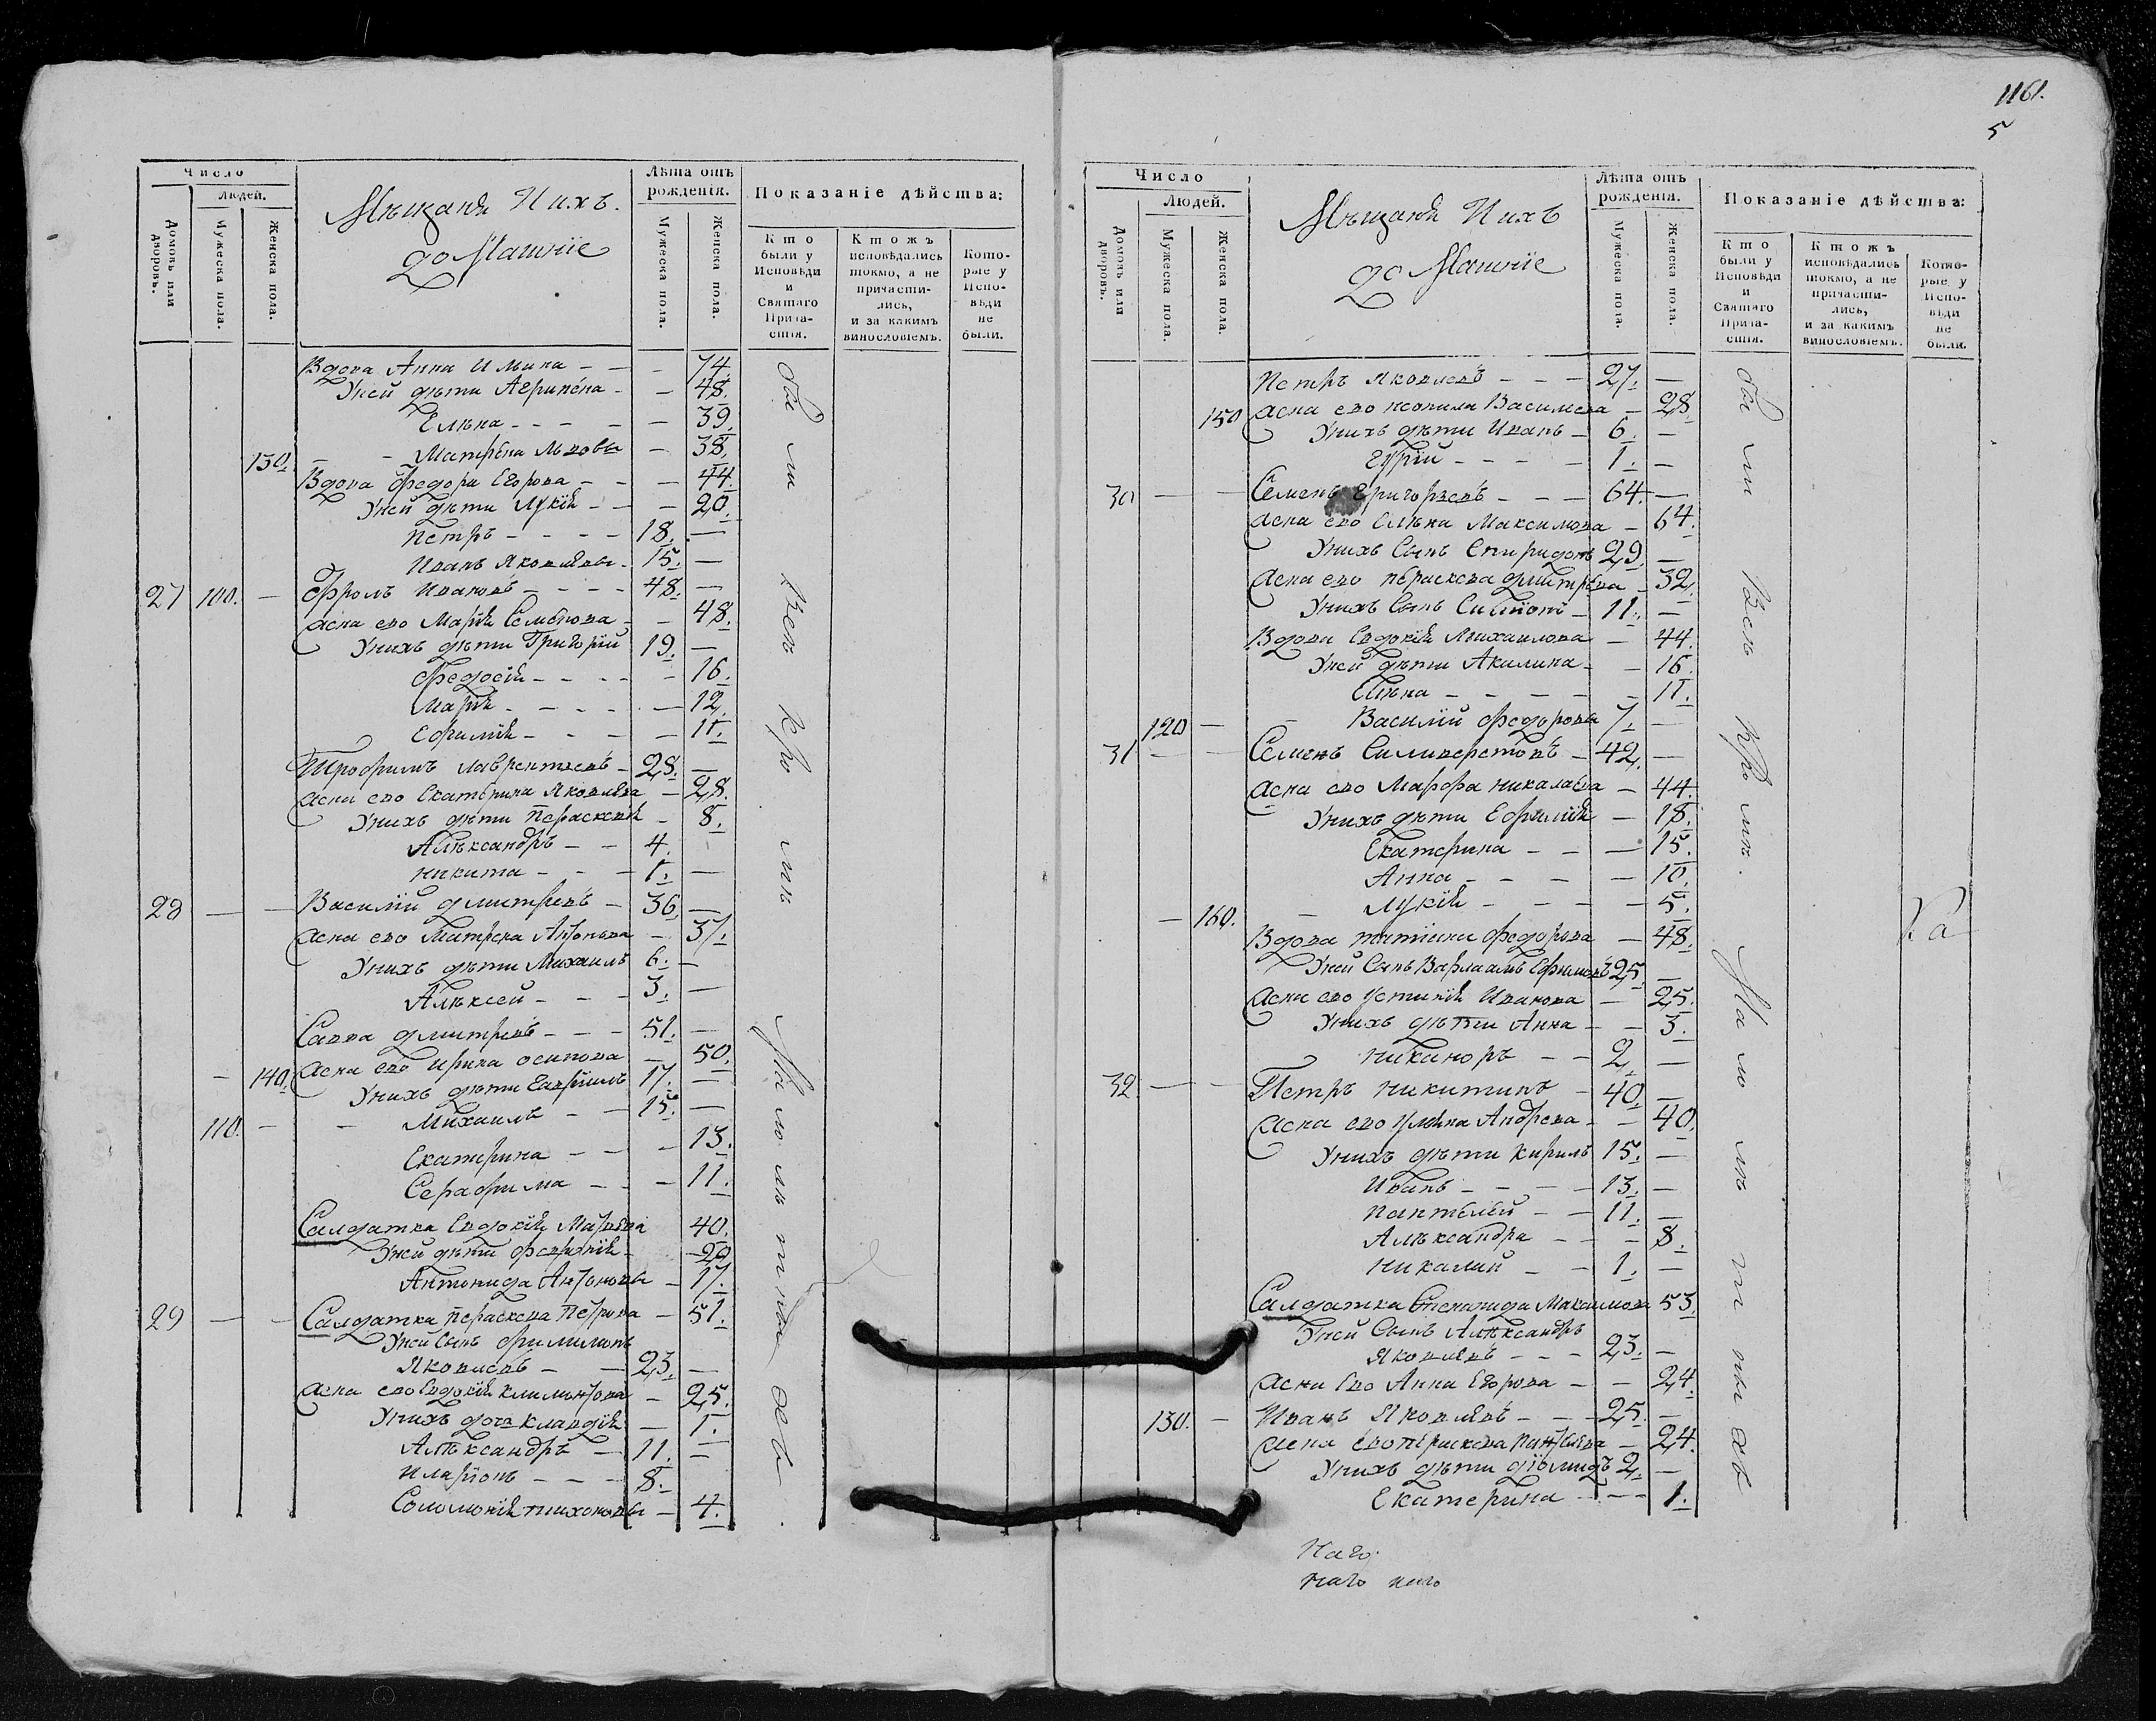 1161.
5
Число
Людей.
Домовъ или дворовъ.
Мужеска пола.
Женска пола.
Мещаня Ихъ.
домашніе
Лѣта отъ рожденія.
Мужеска пола.
Женска пола.
Показаніе дѣйства:
Кто были у Исповѣди и Святаго Прича-стія.
Ктожъ исповѣдались токмо, а не причасти-лись, и за какимъ винословіемъ.
Кото-рые у Испо-вѣди не были.
Вдова Анна Ильина - - - 74.
Уней дѣти Агрипена - - 48.
Елѣна - - - - - 39.
130. - - Матрена Львовы - 38.
Вдова Федора Егорова - - - 44.
Уней дѣти Лукія - - - 20.
Петръ - - - - 18. -
Иванъ Яковлевы - 15. -
27 100. - Фролъ Ивановъ - - - - 48. -
Жена ево Марія Семенова - - 48.
Унихъ дѣти Григорій 19. -
Федосія - - - - - 16.
Марія - - - - - 12.
Ефимія - - - - 11.
Трофимъ Лаврентьевъ - 28. -
Жена ево Екатерина Яковлева - 28.
Унихъ дѣти Параскевія - 8.
Алѣксандръ - - 4. -
Никита - - - 1. -
28 - - Василій Дмитревъ - 36. -
Жена ево Матрена Антонова - 37.
Унихъ дѣти Михаилъ 6. -
Алѣксей - - - 3. -
Савва Дмитревъ - - - 51. -
Жена ево Ирина Осипова - 50.
- 140. Унихъ дѣти Гавріилъ 17. -
110. - - Михаилъ - - 15. -
Екатерина - - - 13.
Серафима - - - 11.
Салдатка Евдокія Маркова 40.
Уней дѣти Февронія - - 20
Антонида Антоновы - 17.
29 - - Салдатка Параскева Петрова - 51.
Уней Сынъ Филимонъ
Яковлевъ - - 23. -
Жена ево Евдокія Климонтова - 25.
Унихъ дочь Клавдія - 1.
Алѣксандръ - 11. -
Иларіонъ - - - 8. -
Соломонія Тихоновы - 4.
были Вси При мѣ Маломѣтныхъ.
Число
Людей.
Домовъ или дворовъ.
Мужеска пола.
Женска пола.
Мещаня Ихъ
домашніе
Лѣта отъ рожденія.
Мужеска пола.
Женска пола.
Показаніе дѣйства:
Кто были у Исповѣди и Святаго Прича-стія.
Ктожъ исповѣдались токмо, а не причасти-лись, и за какимъ винословіемъ.
Кото-рые у Испо-вѣди не были.
Петръ Яковлевъ - - - 27. -
150 Жена ево Неонила Васильева - 28.
Унихъ дѣти Иванъ - 6. -
Гурій - - - - 1. -
30 - - Семенъ Григорьевъ - - - 64. -
Жена ево Елѣна Максимова - 64.
Унихъ Сынъ Спиридонъ 29. -
Жена ево Параскева Дмитрева - 32.
Унихъ Сынъ Симионъ - 11. -
Вдова Евдокія Михаилова - 44.
Уней дѣти Акилина - - 16.
Елѣна - - - - - 11.
120 - - Василій Федоровы 7. -
31 - - Семенъ Силиверстовъ - 42. -
Жена ево Марфа Никалаева - 44.
Унихъ дѣти Ефимія - 18.
Екатерина - - - 15.
Анна - - - - 10.
- 160. - Лукія - - - - 5.
Вдова Татиана Федорова - 48.
Уней Сынъ Варлаамъ Ефимовъ 25. -
Жена ево Устинія Иванова - 25.
Унихъ дѣти Анна - - 3.
Никаноръ - - 2. -
32. - - Петръ Никитинъ - 40. -
Жена ево Ульяна Андрева - - 40.
Унихъ дѣти Кирилъ 15. -
Иванъ - - - - 13. -
Пантелей - - 11. -
Алѣксандра - - - 8.
Никалай - - 1. -
Салдатка Степанида Максимова 53.
Уней Сынъ Алѣксандръ
Яковлевъ - - - 23. -
Жена ево Анна Егорова - - 24.
130. - Иванъ Яковлевъ - - - 25. -
Жена ево Параскева Пантелева - 24.
Унихъ дѣти Діомидъ 2. -
Екатерина - - - 1.
были Вси При мѣ. Маломѣтныхъ
Наго.
наго наго